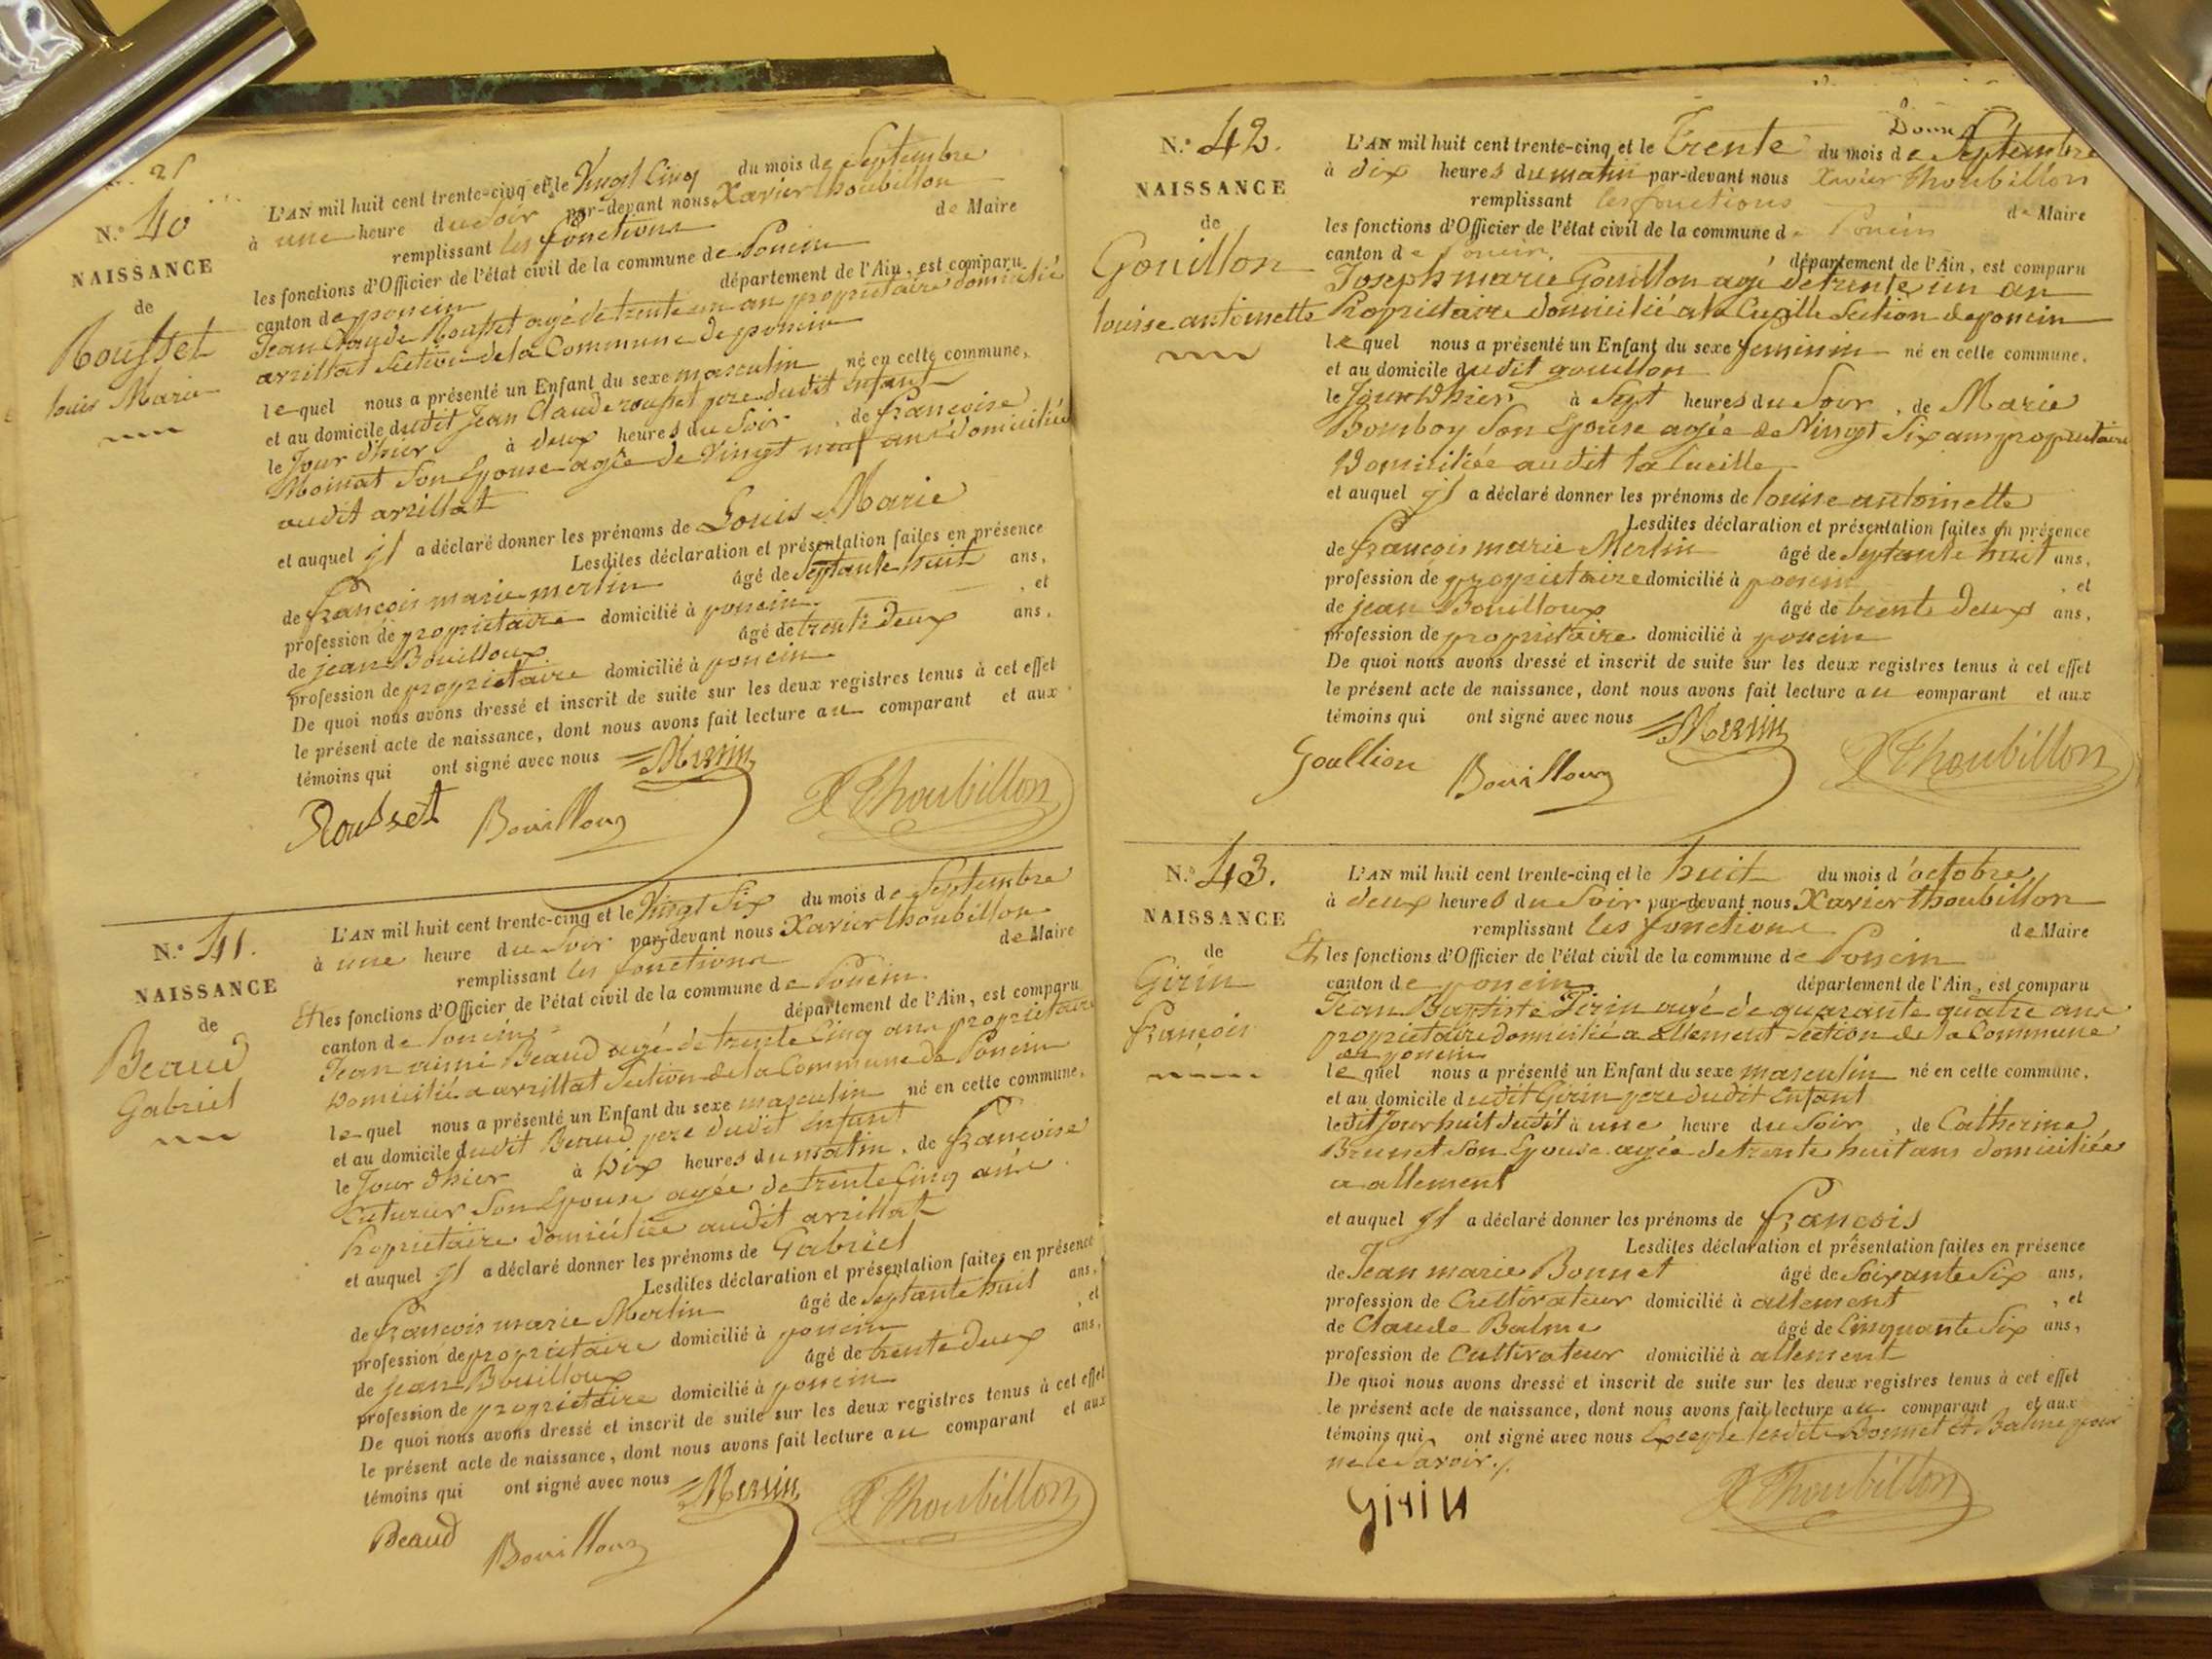 21
N.° 40
NAISSANCE
de
Rousset
Louis Marie
L'AN mil huit cent trente-cinq et le Vingt Cinq du mois de Septembre
à une heure du Soir par-devant nous Xavier Thoubillon
remplissant les fonctions de Maire
les fonctions d'Officier de l'état civil de la commune de Poncin
canton de poncin département de l'Ain, est comparu
Jean Claude Rousset agé de trente un an proprietaire domicilié
arzillat Section de la Commune de poncin
lequel nous a présenté un Enfant du sexe masculin né en cette commune,
et au domicile dudit Jean Claude rousset pere dudit enfant
le Jour d'hier à deux heures du Soir, de francoise
Moinat Son Epouse agée de Vingt neuf ans domiciliée
audit arzillat
et auquel il a déclaré donner les prénoms de Louis Marie
Lesdites déclaration et présentation faites en présence
de françois marie merlin âgé de Septante huit ans,
profession de proprietaire domicilié à poncin, et
de jean Bouilloux âgé de trente deux ans,
profession de proprietaire domicilié à poncin
De quoi nous avons dressé et inscrit de suite sur les deux registres tenus à cet effet
le présent acte de naissance, dont nous avons fait lecture au comparant et aux
témoins qui ont signé avec nous Merlin
Rousset Bouilloux X Thoubillon
N.° 41.
NAISSANCE
de
Beaud
Gabriel
L'AN mil huit cent trente-cinq et le Vingt Six du mois de Septembre
à une heure du Soir par-devant nous Xavier thoubillon
remplissant les fonctions de Maire
Et les fonctions d'Officier de l'état civil de la commune de Poncin
canton de Poncin département de l'Ain, est comparu
Jean aimé Beaud agé de trente Cinq ans proprietaire
Domicilié a arzillat Section de la Commune de Poncin
lequel nous a présenté un Enfant du sexe masculin né en cette commune,
et au domicile dudit Beaud pere dudit Enfant
le Jour d'hier à Dix heures du matin, de francoise
Son Epouse agée de trente Cinq ans
Proprietaire domiciliée audit arzillat
et auquel il a déclaré donner les prénoms de Gabriel
Lesdites déclaration et présentation faites en présence
de françois marie Merlin âgé de Septante huit ans,
profession de proprietaire domicilié à poncin, et
de jean Bouilloux âgé de trente deux ans,
profession de proprietaire domicilié à poncin
De quoi nous avons dressé et inscrit de suite sur les deux registres tenus à cet effet
le présent acte de naissance, dont nous avons fait lecture au comparant et aux
témoins qui ont signé avec nous Merlin
Beaud Bouilloux X Thoubillon
N.° 42.
NAISSANCE
de
Gouillon
louise antoinette
L'AN mil huit cent trente-cinq et le Trente du mois de Septembre
à dix heures du matin par-devant nous Xavier Thoubillon
remplissant les fonctions de Maire
les fonctions d'Officier de l'état civil de la commune de Poncin
canton de Poncin. département de l'Ain, est comparu
Joseph marie Gouillon agé de trente un an
Proprietaire domicilié a la Cueille Section de poncin
lequel nous a présenté un Enfant du sexe feminin né en cette commune,
et au domicile dudit gouillon
le Jour D'hier à Sept heures du Soir, de Marie
Bomboy Son Epouse agée de Vingt Six ans proprietaire
Domiciliée audit la Cueille
et auquel il a déclaré donner les prénoms de louise antoinette
Lesdites déclaration et présentation faites en présence
de françois marie Merlin âgé de Septante huit ans,
profession de proprietaire domicilié à poncin, et
de jean Bouilloux âgé de trente deux ans,
profession de proprietaire domicilié à poncin
De quoi nous avons dressé et inscrit de suite sur les deux registres tenus à cet effet
le présent acte de naissance, dont nous avons fait lecture au comparant et aux
témoins qui ont signé avec nous Merlin
Goullion Bouilloux X Thoubillon
N.° 43.
NAISSANCE
de
Girin
françois
L'AN mil huit cent trente-cinq et le huit du mois d'octobre
à deux heures du Soir par-devant nous Xavier thoubillon
remplissant les fonctions de Maire
Et les fonctions d'Officier de l'état civil de la commune de Poncin
canton de poncin département de l'Ain, est comparu
Jean Baptiste Girin agé de quarante quatre ans
proprietaire domicilié a allement Section de la Commune
de poncin
lequel nous a présenté un Enfant du sexe masculin né en cette commune,
et au domicile dudit Girin pere dudit Enfant
ledit Jour huit dudit à une heure du Soir, de Catherine
Brunet Son Epouse agée de trente huit ans domiciliée
a allement
et auquel il a déclaré donner les prénoms de françois
Lesdites déclaration et présentation faites en présence
de Jean marie Bonnet âgé de Soixante Six ans,
profession de Cultivateur domicilié à allement, et
de Claude Balme âgé de Cinquante Six ans,
profession de Cultivateur domicilié à allement
De quoi nous avons dressé et inscrit de suite sur les deux registres tenus à cet effet
le présent acte de naissance, dont nous avons fait lecture au comparant et aux
témoins qui ont signé avec nous Excepté lesdits Bonnet et Balme pour
ne le Savoir./.
Girin X Thoubillon